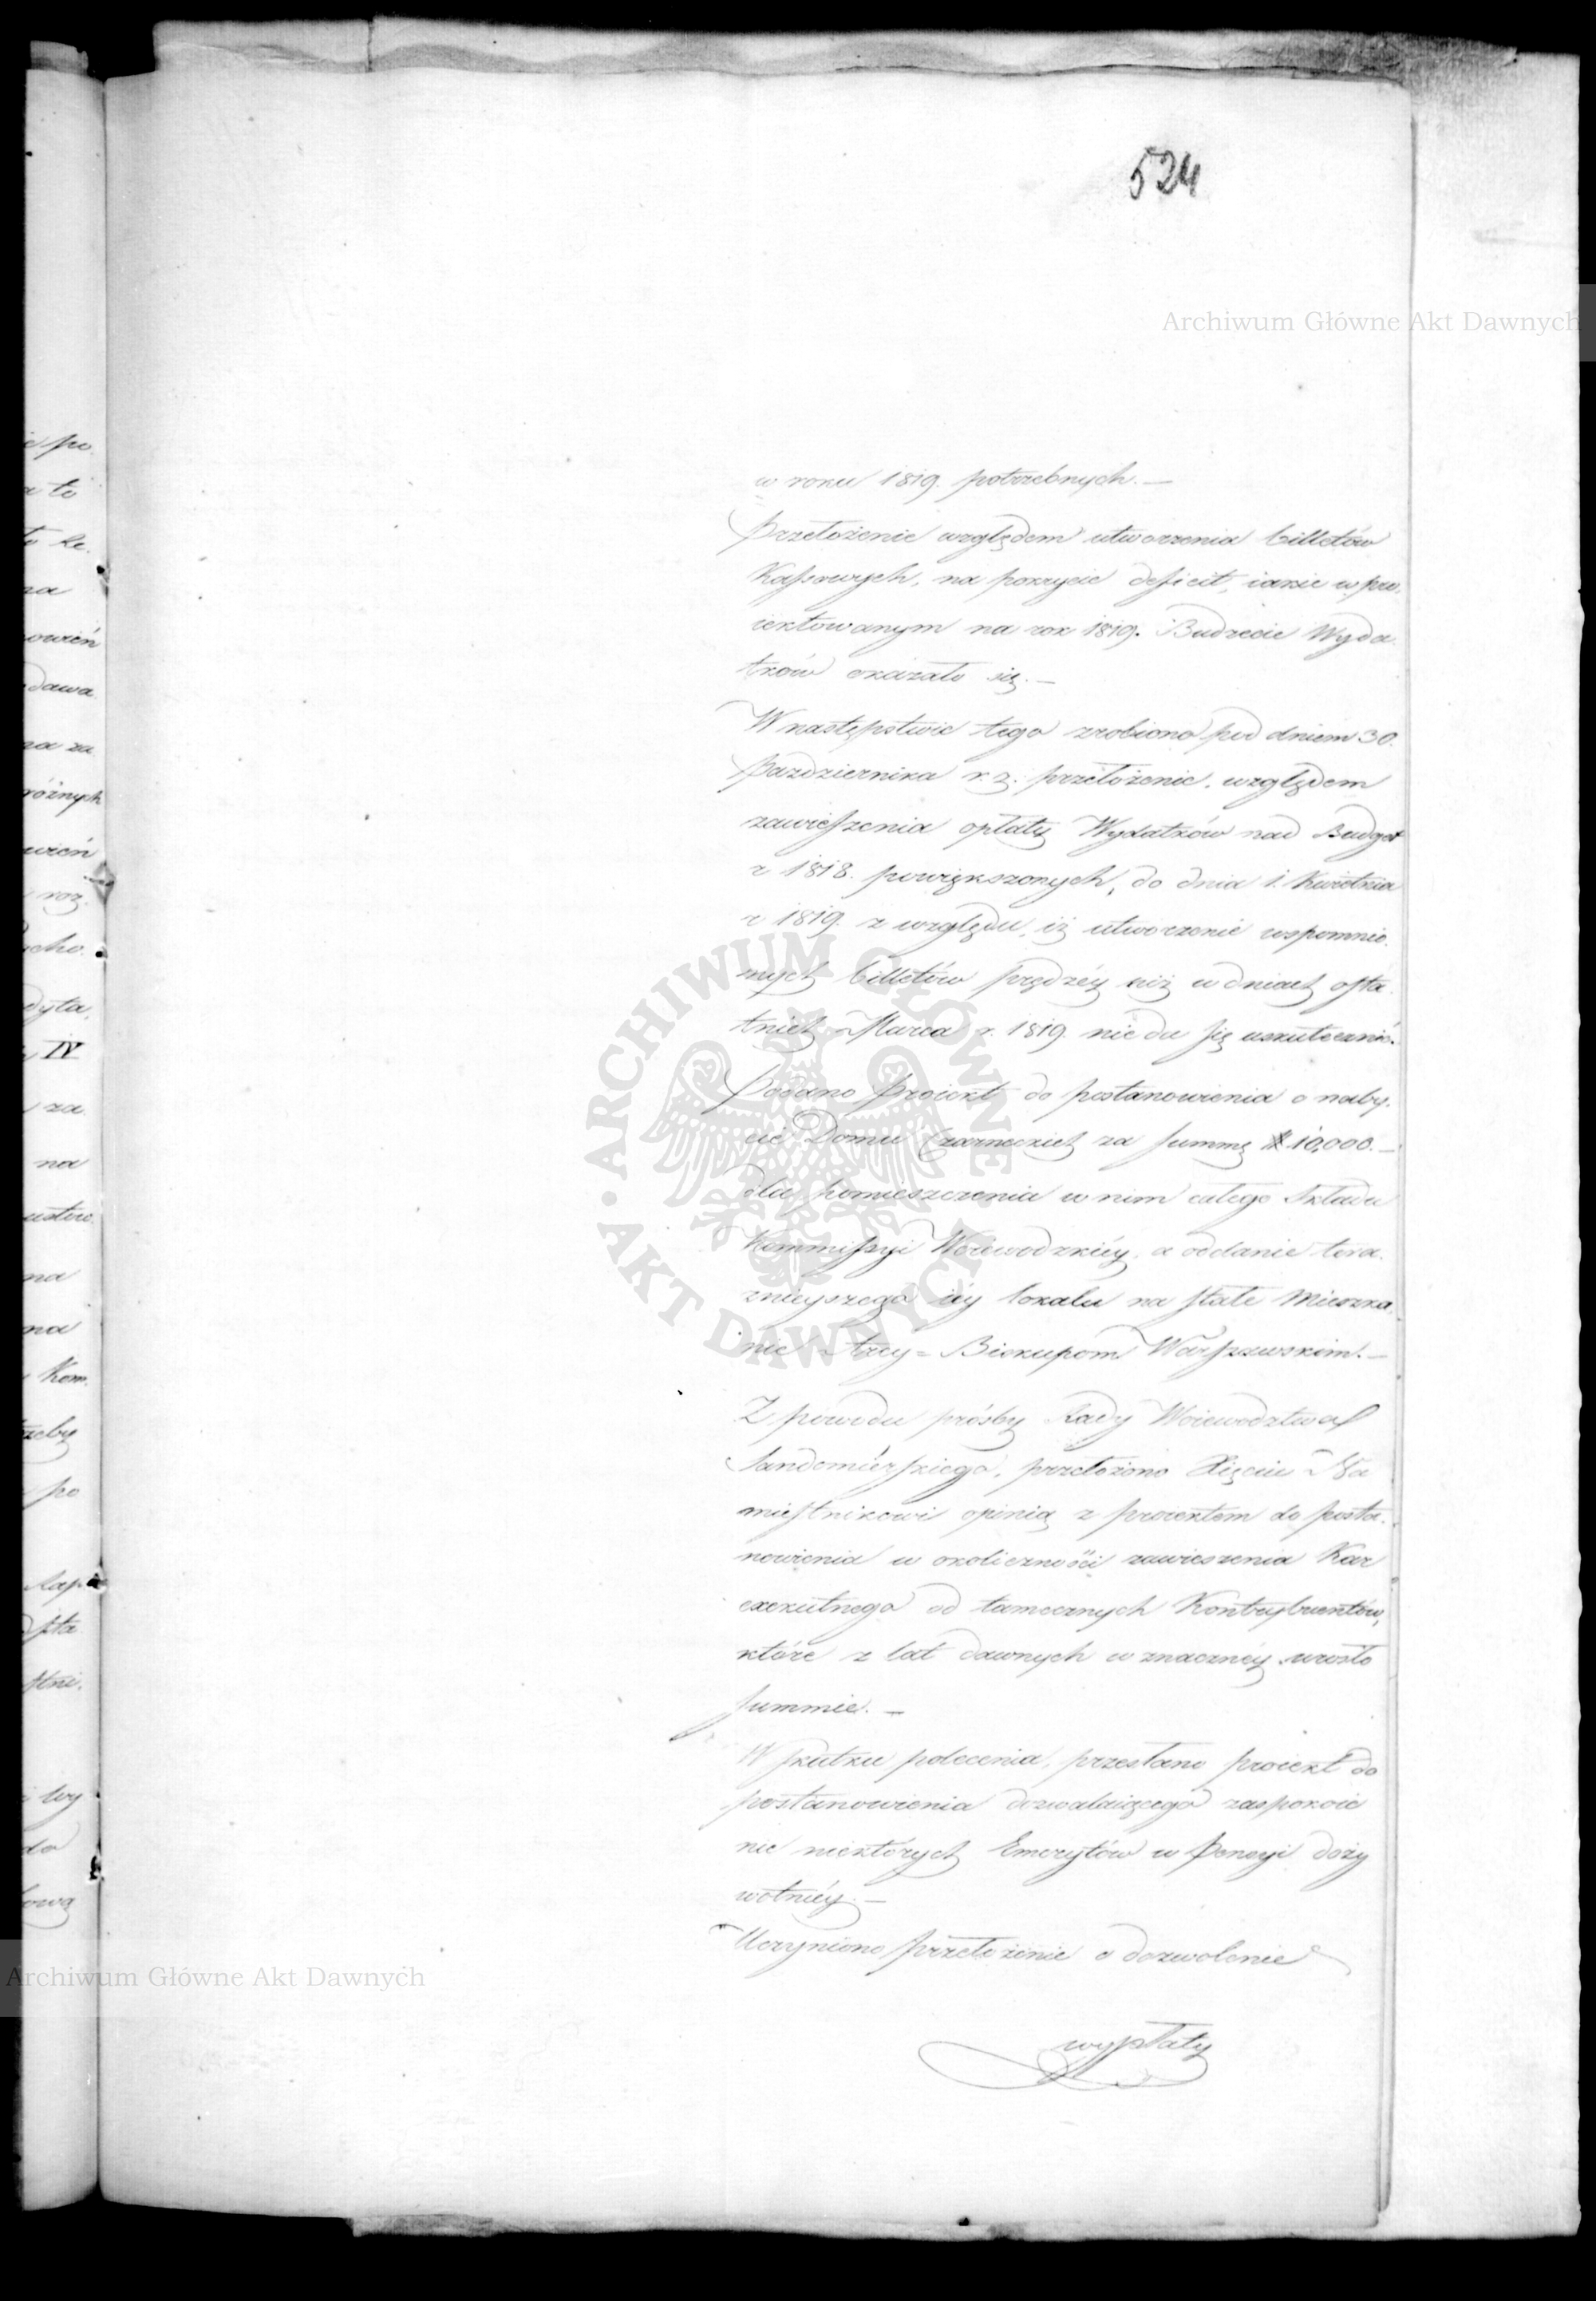 524
Archiwum Główne Akt Dawnych
w roku 1819. potrzebnych. —
Przełożenie względem utworzenia billetów
Kassowych, na pokrycie deficit, iakie w pro-
iektowanym na rok 1819. Budżecie Wyda-
tków okazało się. —
W następstwie tego zrobiono pod dniem 30.
Października r. z. przełożenie, względem
zawieszenia opłaty Wydatków nad Budget
r 1818. powiększonych, do dnia 1. Kwietnia
r 1819. z względu, iż utworzenie wspomnio-
nych billetów prędzéy niż w dniach osta-
tnich Marca r. 1819. nie da się uskutecznić.
Podano Proiekt do postanowienia o naby-
cie Domu Czarneckich za summę 10,000. —
dla pomieszczenia w nim całego Składu
Kommissyi Woiewodzkiéy, a oddanie tera-
znieyszego iéy lokalu na stałe Mieszka-
nie Arcy-Biskupom Warszawskim. —
Z powodu prósby Rady Woiewodztwa
Sandomiérskiego, przełożono Xięciu Na-
miestnikowi opinią z proiektem do posta-
nowienia w okoliczności zawieszenia Kar
exekutnego od tamecznych Kontrybuentów,
które z lat dawnych w znacznéy urosło
summie. —
W skutku polecenia, przesłano proiekt do
postanowienia dozwalaiącego zaspokoie-
nie niektórych Emerytów w Pensyi doży-
wotniéy. —
Uczyniono przełożenie o dozwolenie
wypłaty
ARCHIWUM GŁÓWNE AKT DAWNYCH
Archiwum Główne Akt Dawnych